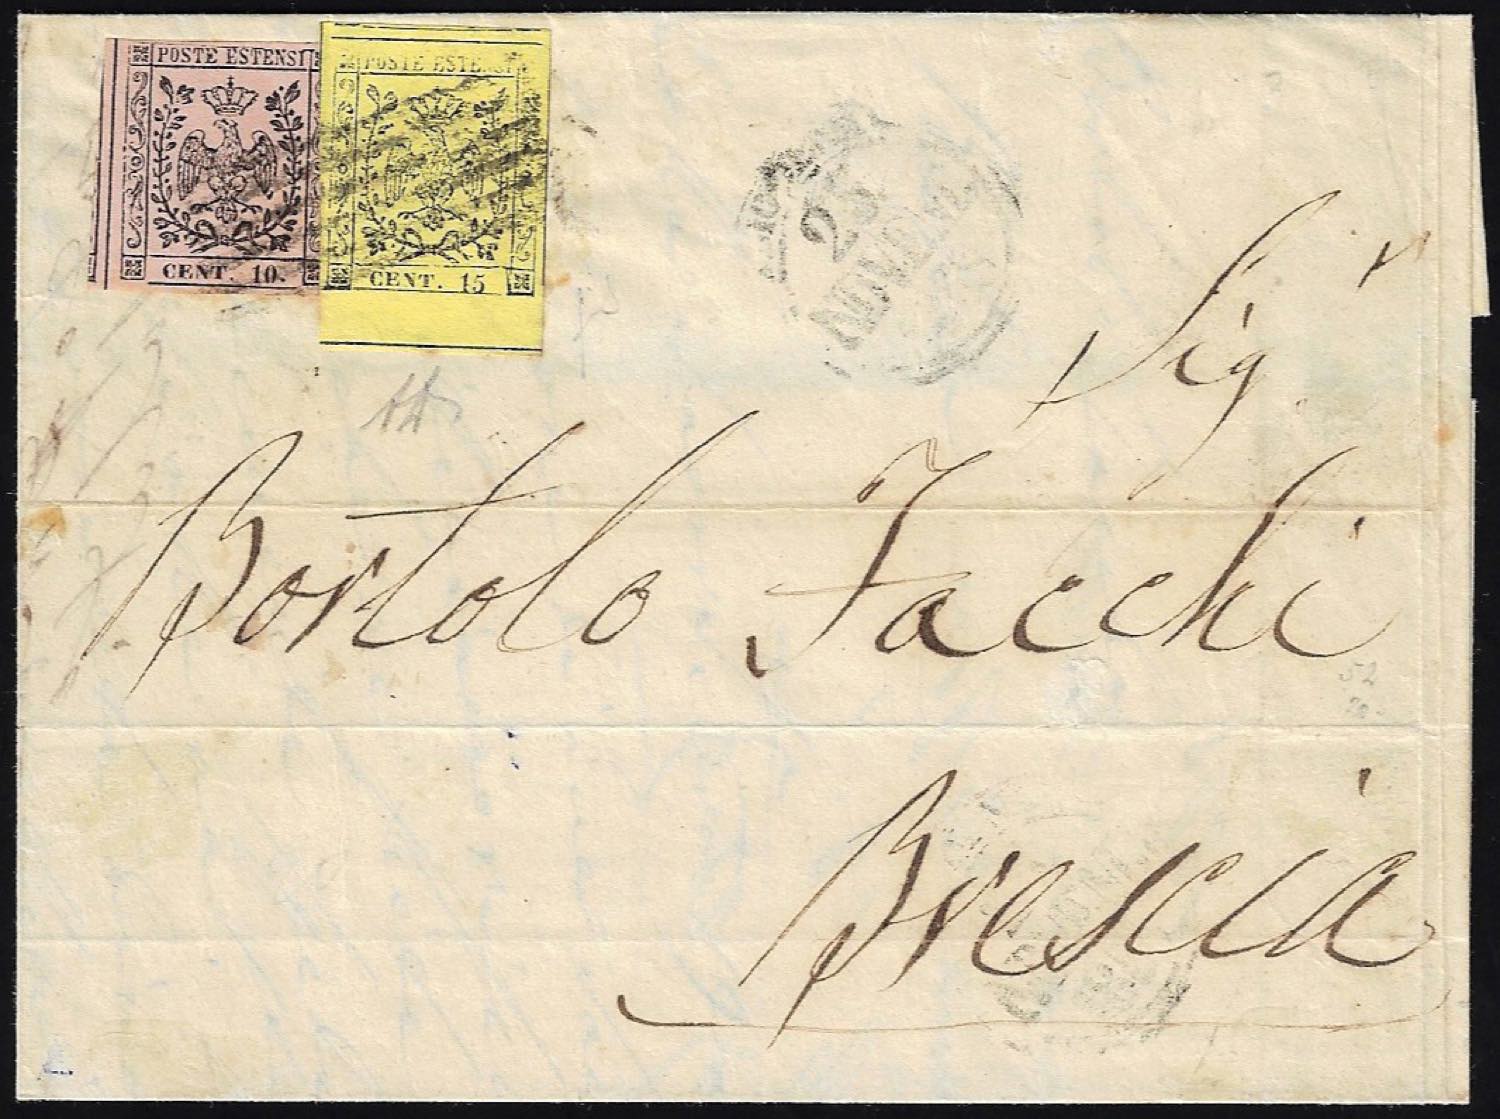 POSTE ESTENSI
CENT. 10.
POSTE ESTENSI
CENT. 15
25
Sig.r
Bortolo Facchi
Brescia
52